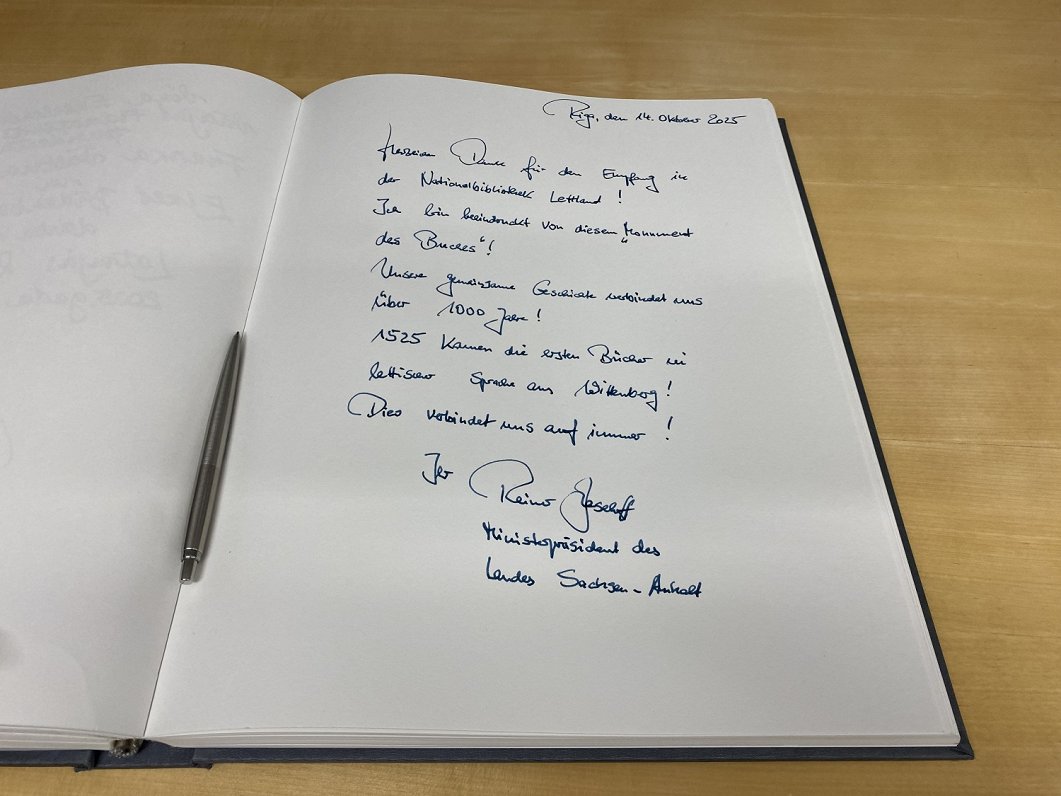 Riga, den 14. Oktober 2025
Herzlichen Dank für den Empfang in
der Nationalbibliothek Lettland!
Ich bin beeindruckt von diesem "Monument
des Buches"!
Unsere gemeinsame Geschichte verbindet uns
über 1000 Jahre!
1525 kamen die ersten Bücher in
lettischer Sprache aus Wittenberg!
Dies verbindet uns auf immer!
Ihr Reiner Haseloff
Ministerpräsident des
Landes Sachsen-Anhalt